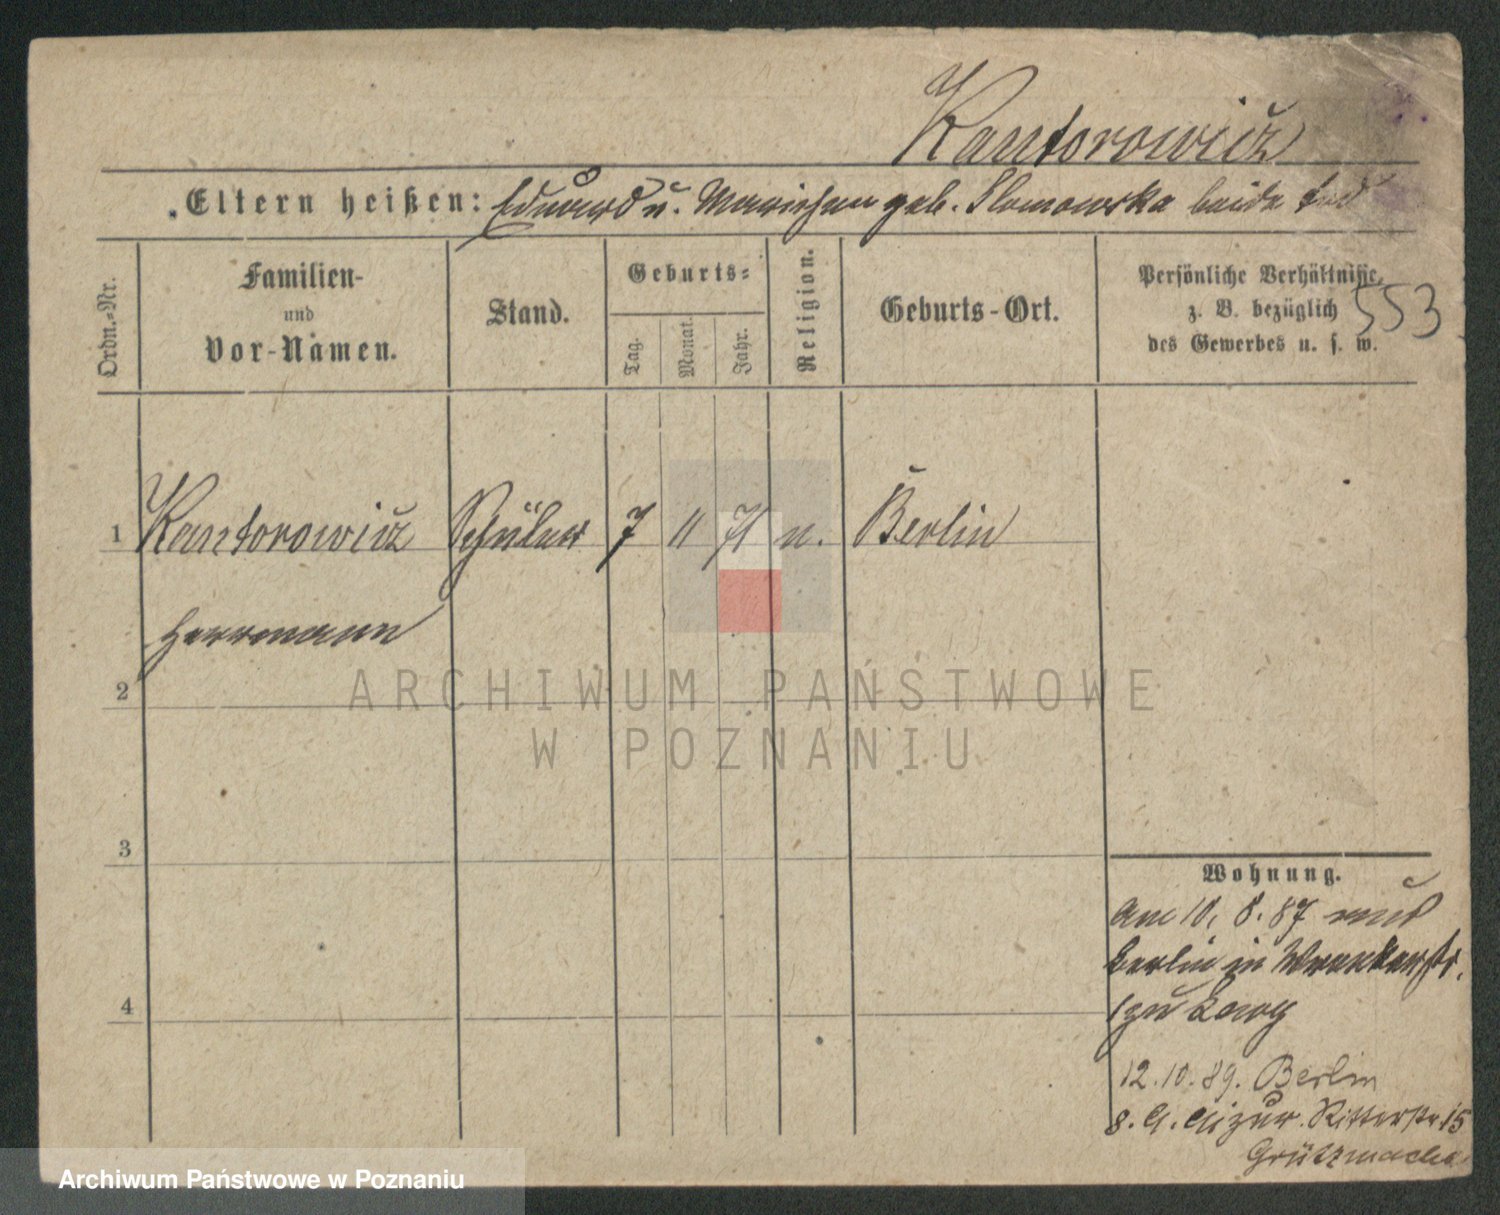 Kantorowicz
Eltern heißen: Eduard u. Mariehan geb. Slomowska beide tod
Ordn.-Nr.
Familien-
und
Vor-Namen.
Stand.
Geburts-
Tag.
Monat.
Jahr.
Religion.
Geburts-Ort.
Persönliche Verhältnisse,
z. B. bezüglich
des Gewerbes u. s. w.
553
1 Kantorowicz Schüler 7 11 71 Berlin
Herrmann
2
3
4
Wohnung.
am 10. 8. 87 aus
Berlin in Wronkerstr.
12.10.89. Berlin
Ritterstr 15
Grützmacher
ARCHIWUM PAŃSTWOWE
W POZNANIU
Archiwum Państwowe w Poznaniu